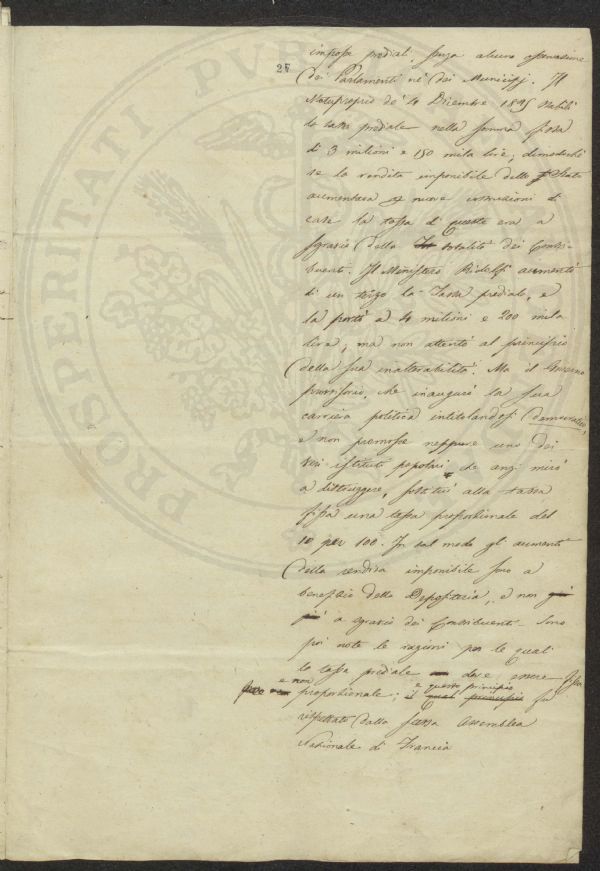 PROSPERITATI PUB
27
imposte prediali, senza alcuna operazione
dei Parlamenti nè dei Municipj. Il
Motuproprio de' 4 Dicembre 1845 stabilì
la tassa prediale nella somma fissa
di 3 milioni e 150 mila lire; dimodochè
se la rendita imponibile dello Stato
aumentava per nuove costruzioni di
case la tassa di queste era a
sgravio della totalità dei Contri-
buenti. Il Ministero Ridolfi aumentò
di un terzo la tassa prediale, e
la portò a 4 milioni e 200 mila
lire; ma non attentò al principio
della sua inalterabilità. Ma il Governo
provvisorio, che inaugurò la sua
carriera politica intitolandosi democratico,
e non promosse neppure uno dei
veri istituti popolari, che anzi mirò
a distruggere, sostituì alla tassa
fissa una tassa proporzionale del
10 per 100. In tal modo gli aumenti
della rendita imponibile sono a
benefizio della Depositeria, e non già
più a sgravio dei Contribuenti. Sono
poi note le ragioni per le quali
la tassa prediale deve essere fissa
e non e questo principio
proporzionale; il qual principio fu
rispettato dalla stessa Assemblea
Nazionale di Francia